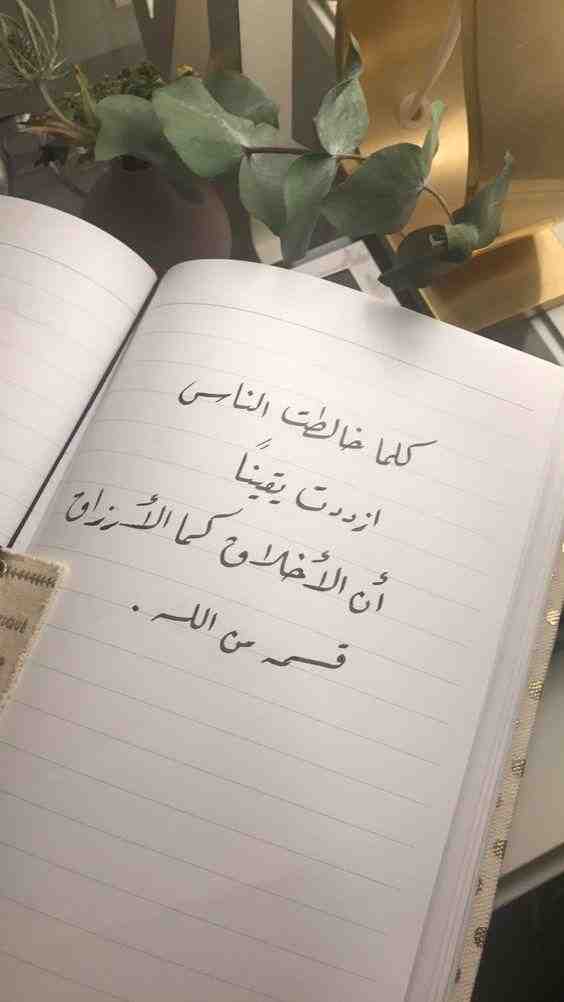 كلما خالطت الناس
ازددت يقينًا
أن الأخلاق كما الأرزاق
قسمه من الله .